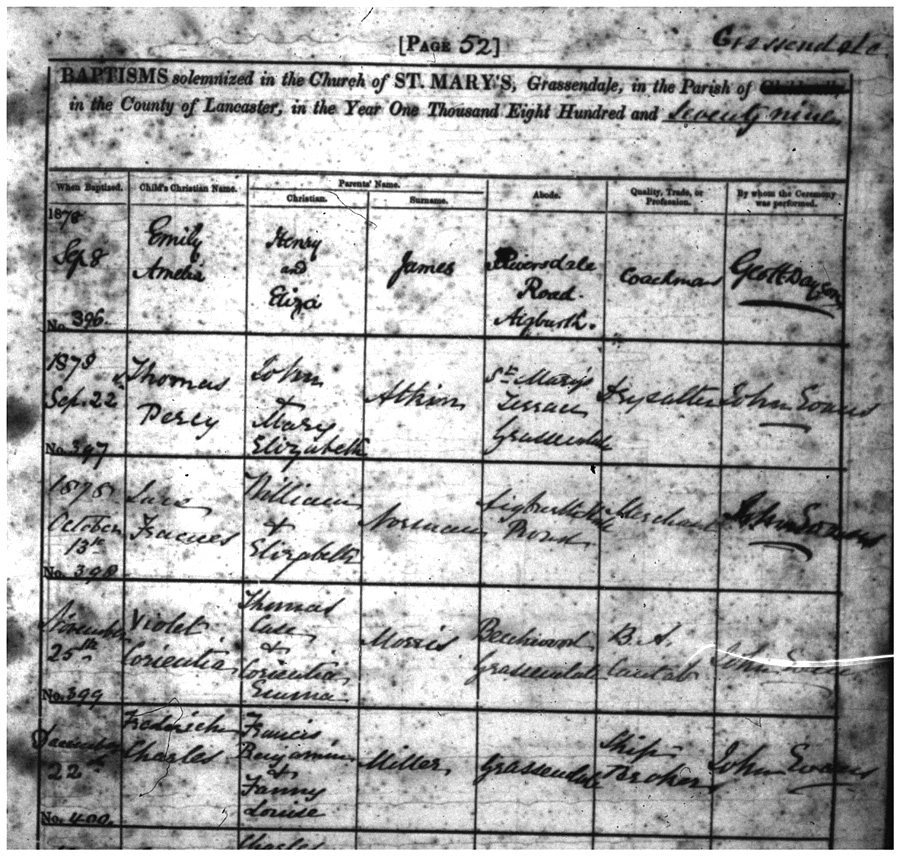 [PAGE 52]
Grassendale
BAPTISMS solemnized in the Church of ST. MARY'S, Grassendale, in the Parish of
in the County of Lancaster, in the Year One Thousand Eight Hundred and Seventy nine
When Baptized.
Child's Christian Name.
Parents' Name.
Christian.
Surname.
Abode.
Quality, Trade, or
Profession.
By whom the Ceremony
was performed.
1878
Sep 8
No. 396.
Emily
Amelia
Henry
and
Eliza
James
Riversdale
Road.
Aigburth.
Coachman
1878
Sep. 22
No. 397
Thomas
Percy
John
+
Mary
Elizabeth
Atkin
St. Mary's
Terrace
Grassendale
Drysalter
John Evans
1878
October
13th
No. 398
Frances
William
+
Elizabeth
Norman
Merchant
John Evans
November
25th
No. 399
Violet
Corientia
Thomas
Case
+
Corientia
Emma
Morris
Beechwood
Grassendale
B.A.
Cantab
John Evans
December
22
No. 400.
Frederick
Charles
Francis
Benjamin
+
Fanny
Louise
Miller
Grassendale
Ship
Broker
John Evans
Charles